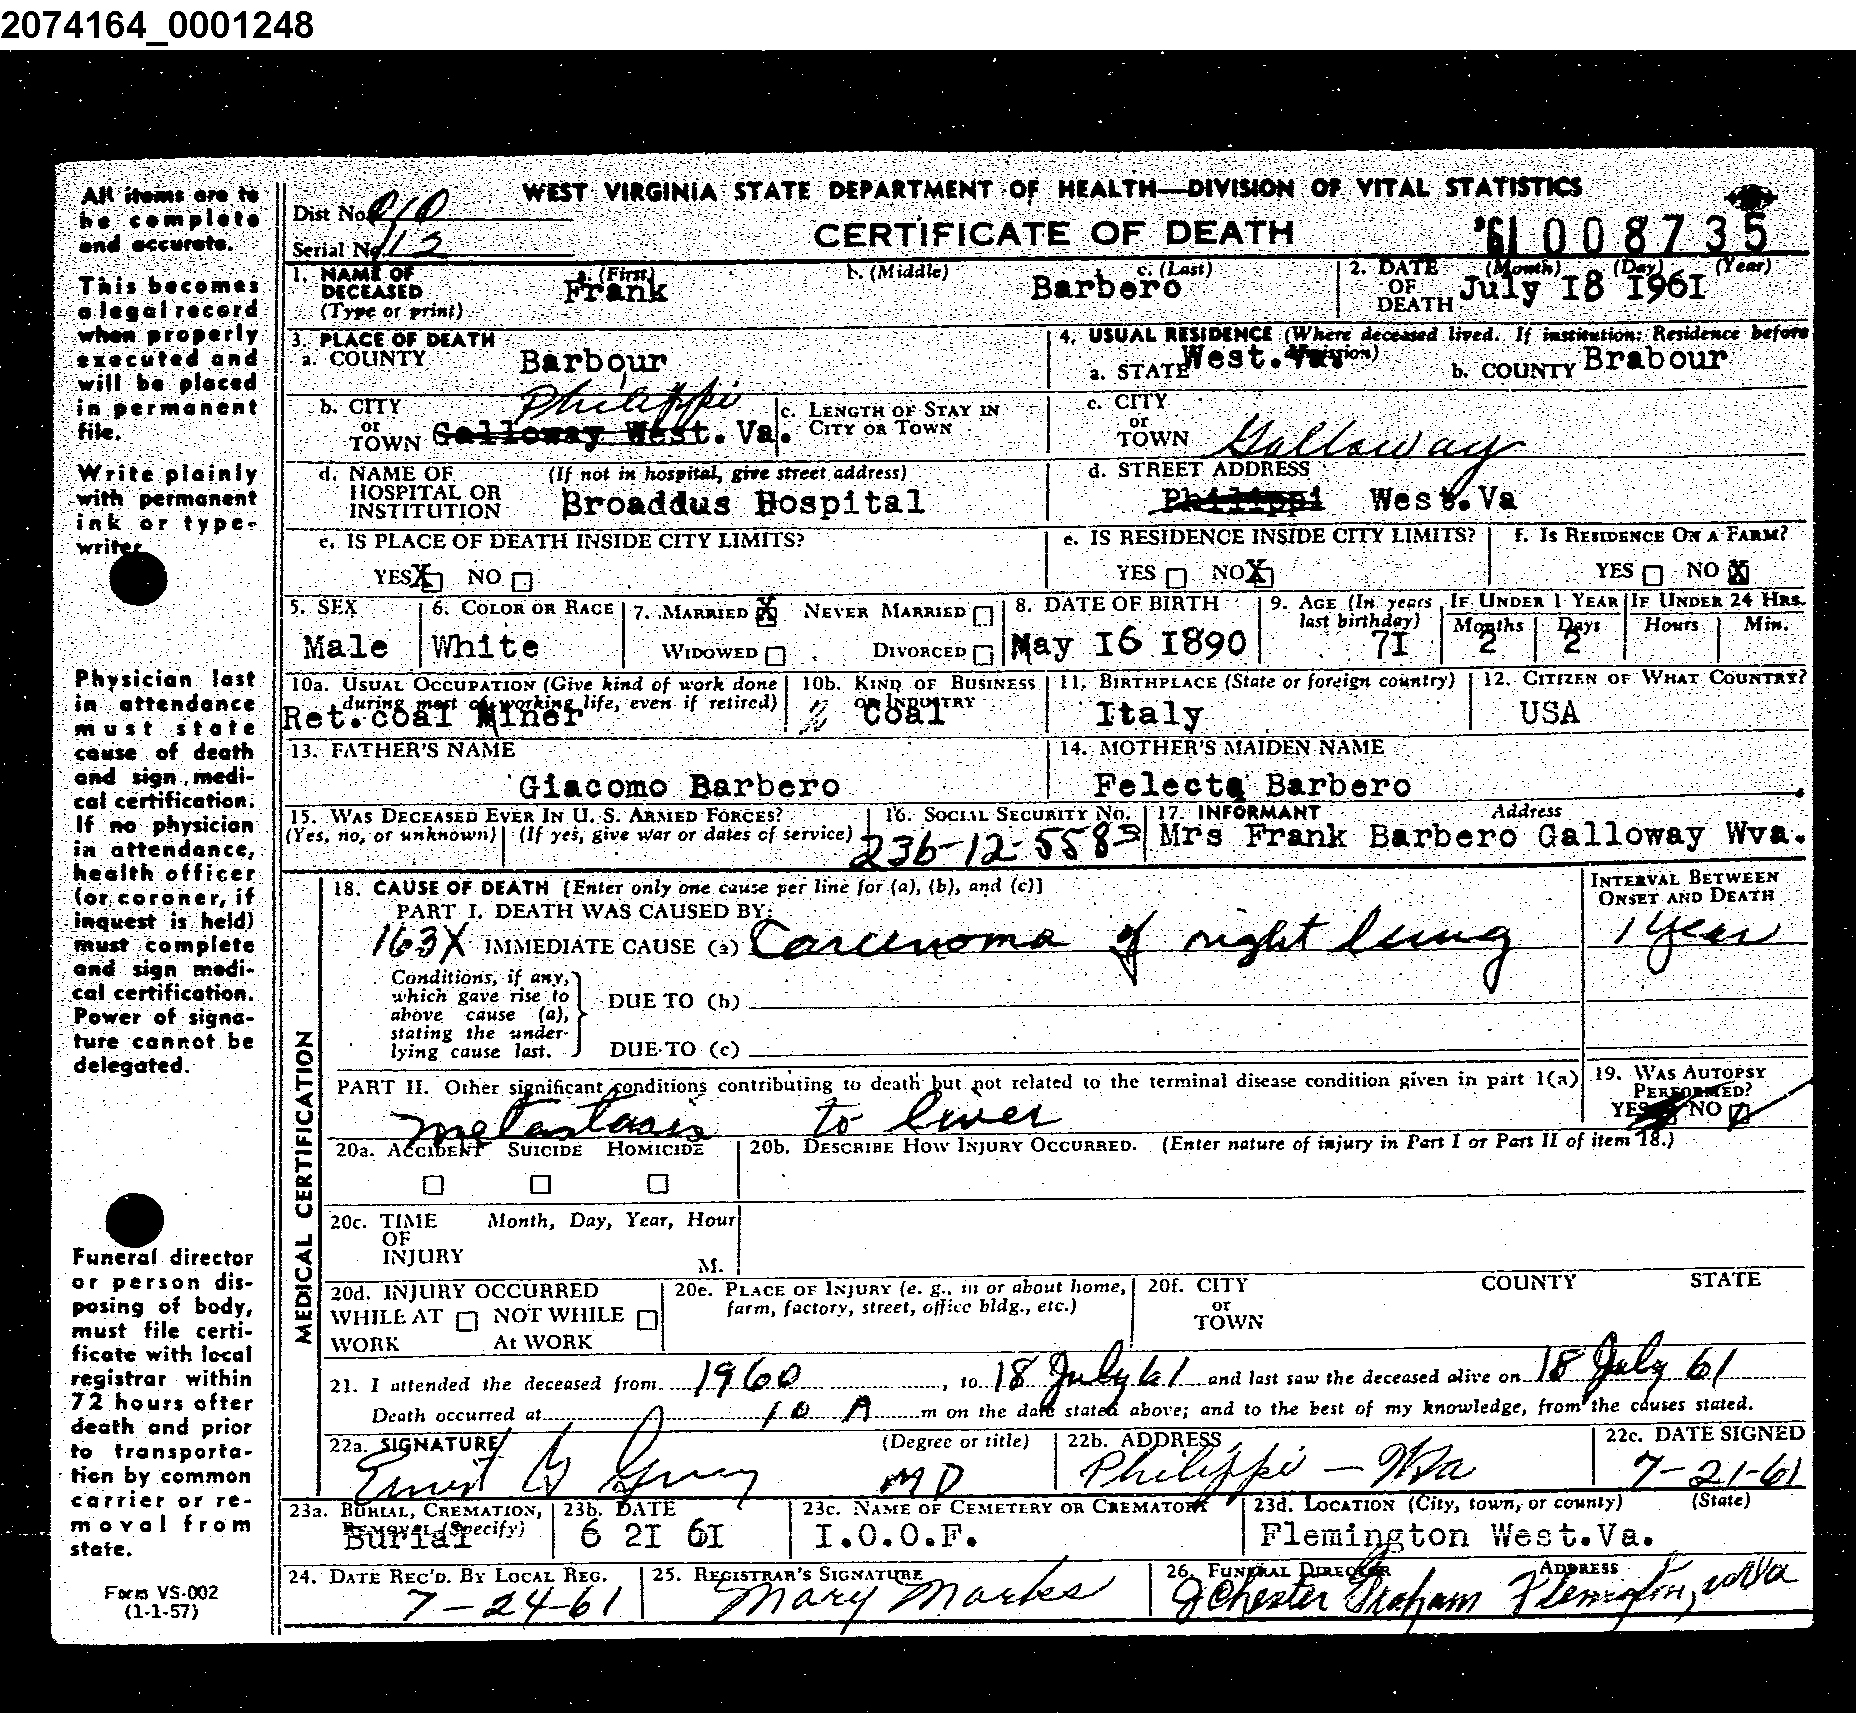 2074164_0001248
All items are to be complete and accurate.
This becomes a legal record when properly executed and will be placed in permanent file.
Write plainly with permanent ink or typewriter
Physician last in attendance must state cause of death and sign medical certification. If no physician in attendance, health officer (or coroner, if inquest is held) must complete and sign medical certification. Power of signature cannot be delegated.
Funeral director or person disposing of body, must file certificate with local registrar within 72 hours after death and prior to transportation by common carrier or removal from state.
Form VS-002
(1-1-57)
WEST VIRGINIA STATE DEPARTMENT OF HEALTH—DIVISION OF VITAL STATISTICS
Dist No. 010
CERTIFICATE OF DEATH
'61 008735
Serial No.
1. NAME OF DECEASED (Type or print) a. (First) Frank b. (Middle) c. (Last) Barbero
2. DATE OF DEATH (Month) (Day) (Year) July 18 1961
3. PLACE OF DEATH
a. COUNTY Barbour
4. USUAL RESIDENCE (Where deceased lived. If institution: Residence before
a. STATE West. Va. b. COUNTY Brabour
b. CITY or TOWN Philippi Galloway West. Va.
c. LENGTH OF STAY IN CITY OR TOWN
c. CITY or TOWN Galloway
d. NAME OF HOSPITAL OR INSTITUTION (If not in hospital, give street address) Broaddus Hospital
d. STREET ADDRESS Philippi West.Va
e. IS PLACE OF DEATH INSIDE CITY LIMITS?
YES X NO
e. IS RESIDENCE INSIDE CITY LIMITS?
YES NO X
f. IS RESIDENCE ON A FARM?
YES NO X
5. SEX Male
6. COLOR OR RACE White
7. MARRIED X NEVER MARRIED WIDOWED DIVORCED
8. DATE OF BIRTH May 16 1890
9. AGE (In years last birthday) 71
IF UNDER 1 YEAR Months 2 Days 2
IF UNDER 24 HRS. Hours Min.
10a. USUAL OCCUPATION (Give kind of work done during most of working life, even if retired) Ret.coal Miner
10b. KIND OF BUSINESS OR INDUSTRY Coal
11. BIRTHPLACE (State or foreign country) Italy
12. CITIZEN OF WHAT COUNTRY? USA
13. FATHER'S NAME Giacomo Barbero
14. MOTHER'S MAIDEN NAME Felecta Barbero
15. WAS DECEASED EVER IN U. S. ARMED FORCES?
(Yes, no, or unknown) (If yes, give war or dates of service)
16. SOCIAL SECURITY NO. 236-12-5583
17. INFORMANT Address Mrs Frank Barbero Galloway Wva.
MEDICAL CERTIFICATION
18. CAUSE OF DEATH [Enter only one cause per line for (a), (b), and (c)]
INTERVAL BETWEEN ONSET AND DEATH
PART I. DEATH WAS CAUSED BY:
163X IMMEDIATE CAUSE (a) Carcinoma of right lung 1 year
Conditions, if any, which gave rise to above cause (a), stating the underlying cause last.
DUE TO (b)
DUE TO (c)
PART II. Other significant conditions contributing to death but not related to the terminal disease condition given in part 1(a)
metastasis to liver
19. WAS AUTOPSY PERFORMED?
YES NO
20a. ACCIDENT SUICIDE HOMICIDE
20b. DESCRIBE HOW INJURY OCCURRED. (Enter nature of injury in Part I or Part II of item 18.)
20c. TIME OF INJURY Month, Day, Year, Hour M.
20d. INJURY OCCURRED WHILE AT WORK NOT WHILE At WORK
20e. PLACE OF INJURY (e. g., in or about home, farm, factory, street, office bldg., etc.)
20f. CITY or TOWN COUNTY STATE
21. I attended the deceased from 1960, to 18 July 61 and last saw the deceased alive on 18 July 61
Death occurred at 10 A m on the date stated above; and to the best of my knowledge, from the causes stated.
22a. SIGNATURE (Degree or title) MD
22b. ADDRESS Philippi - WVa
22c. DATE SIGNED 7-21-61
23a. BURIAL, CREMATION, REMOVAL (Specify) Burial
23b. DATE 6 21 61
23c. NAME OF CEMETERY OR CREMATORY I.O.O.F.
23d. LOCATION (City, town, or county) (State) Flemington West.Va.
24. DATE REC'D. BY LOCAL REG. 7-24-61
25. REGISTRAR'S SIGNATURE Mary Marks
26. FUNERAL DIRECTOR ADDRESS J Chester Graham Flemington, WVa